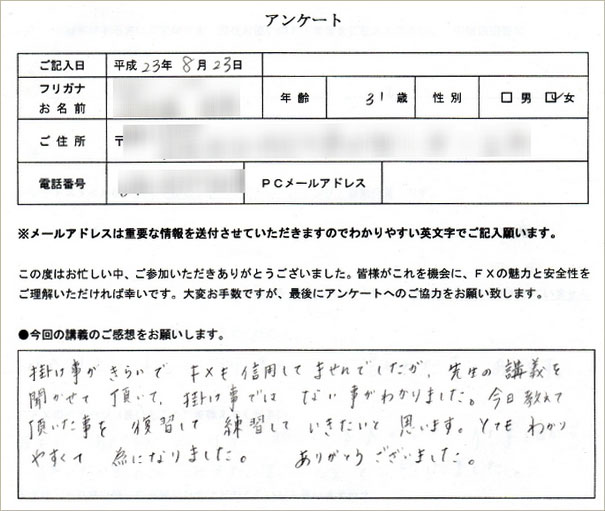 アンケート
ご記入日 平成23年8月23日
フリガナ
お名前 年齢 31歳 性別 □男 ☑女
ご住所 〒
電話番号 PCメールアドレス
※メールアドレスは重要な情報を送付させていただきますのでわかりやすい英文字でご記入願います。
この度はお忙しい中、ご参加いただきありがとうございました。皆様がこれを機会に、FXの魅力と安全性を
ご理解いただければ幸いです。大変お手数ですが、最後にアンケートへのご協力をお願い致します。
●今回の講義のご感想をお願いします。
掛け事がきらいで FXも信用してませんでしたが、先生の講義を
聞かせて頂いて、掛け事では ない事がわかりました。今日教えて
頂いた事を 復習して 練習して いきたいと 思います。とても わかり
やすくて 為になりました。 ありがとうございました。